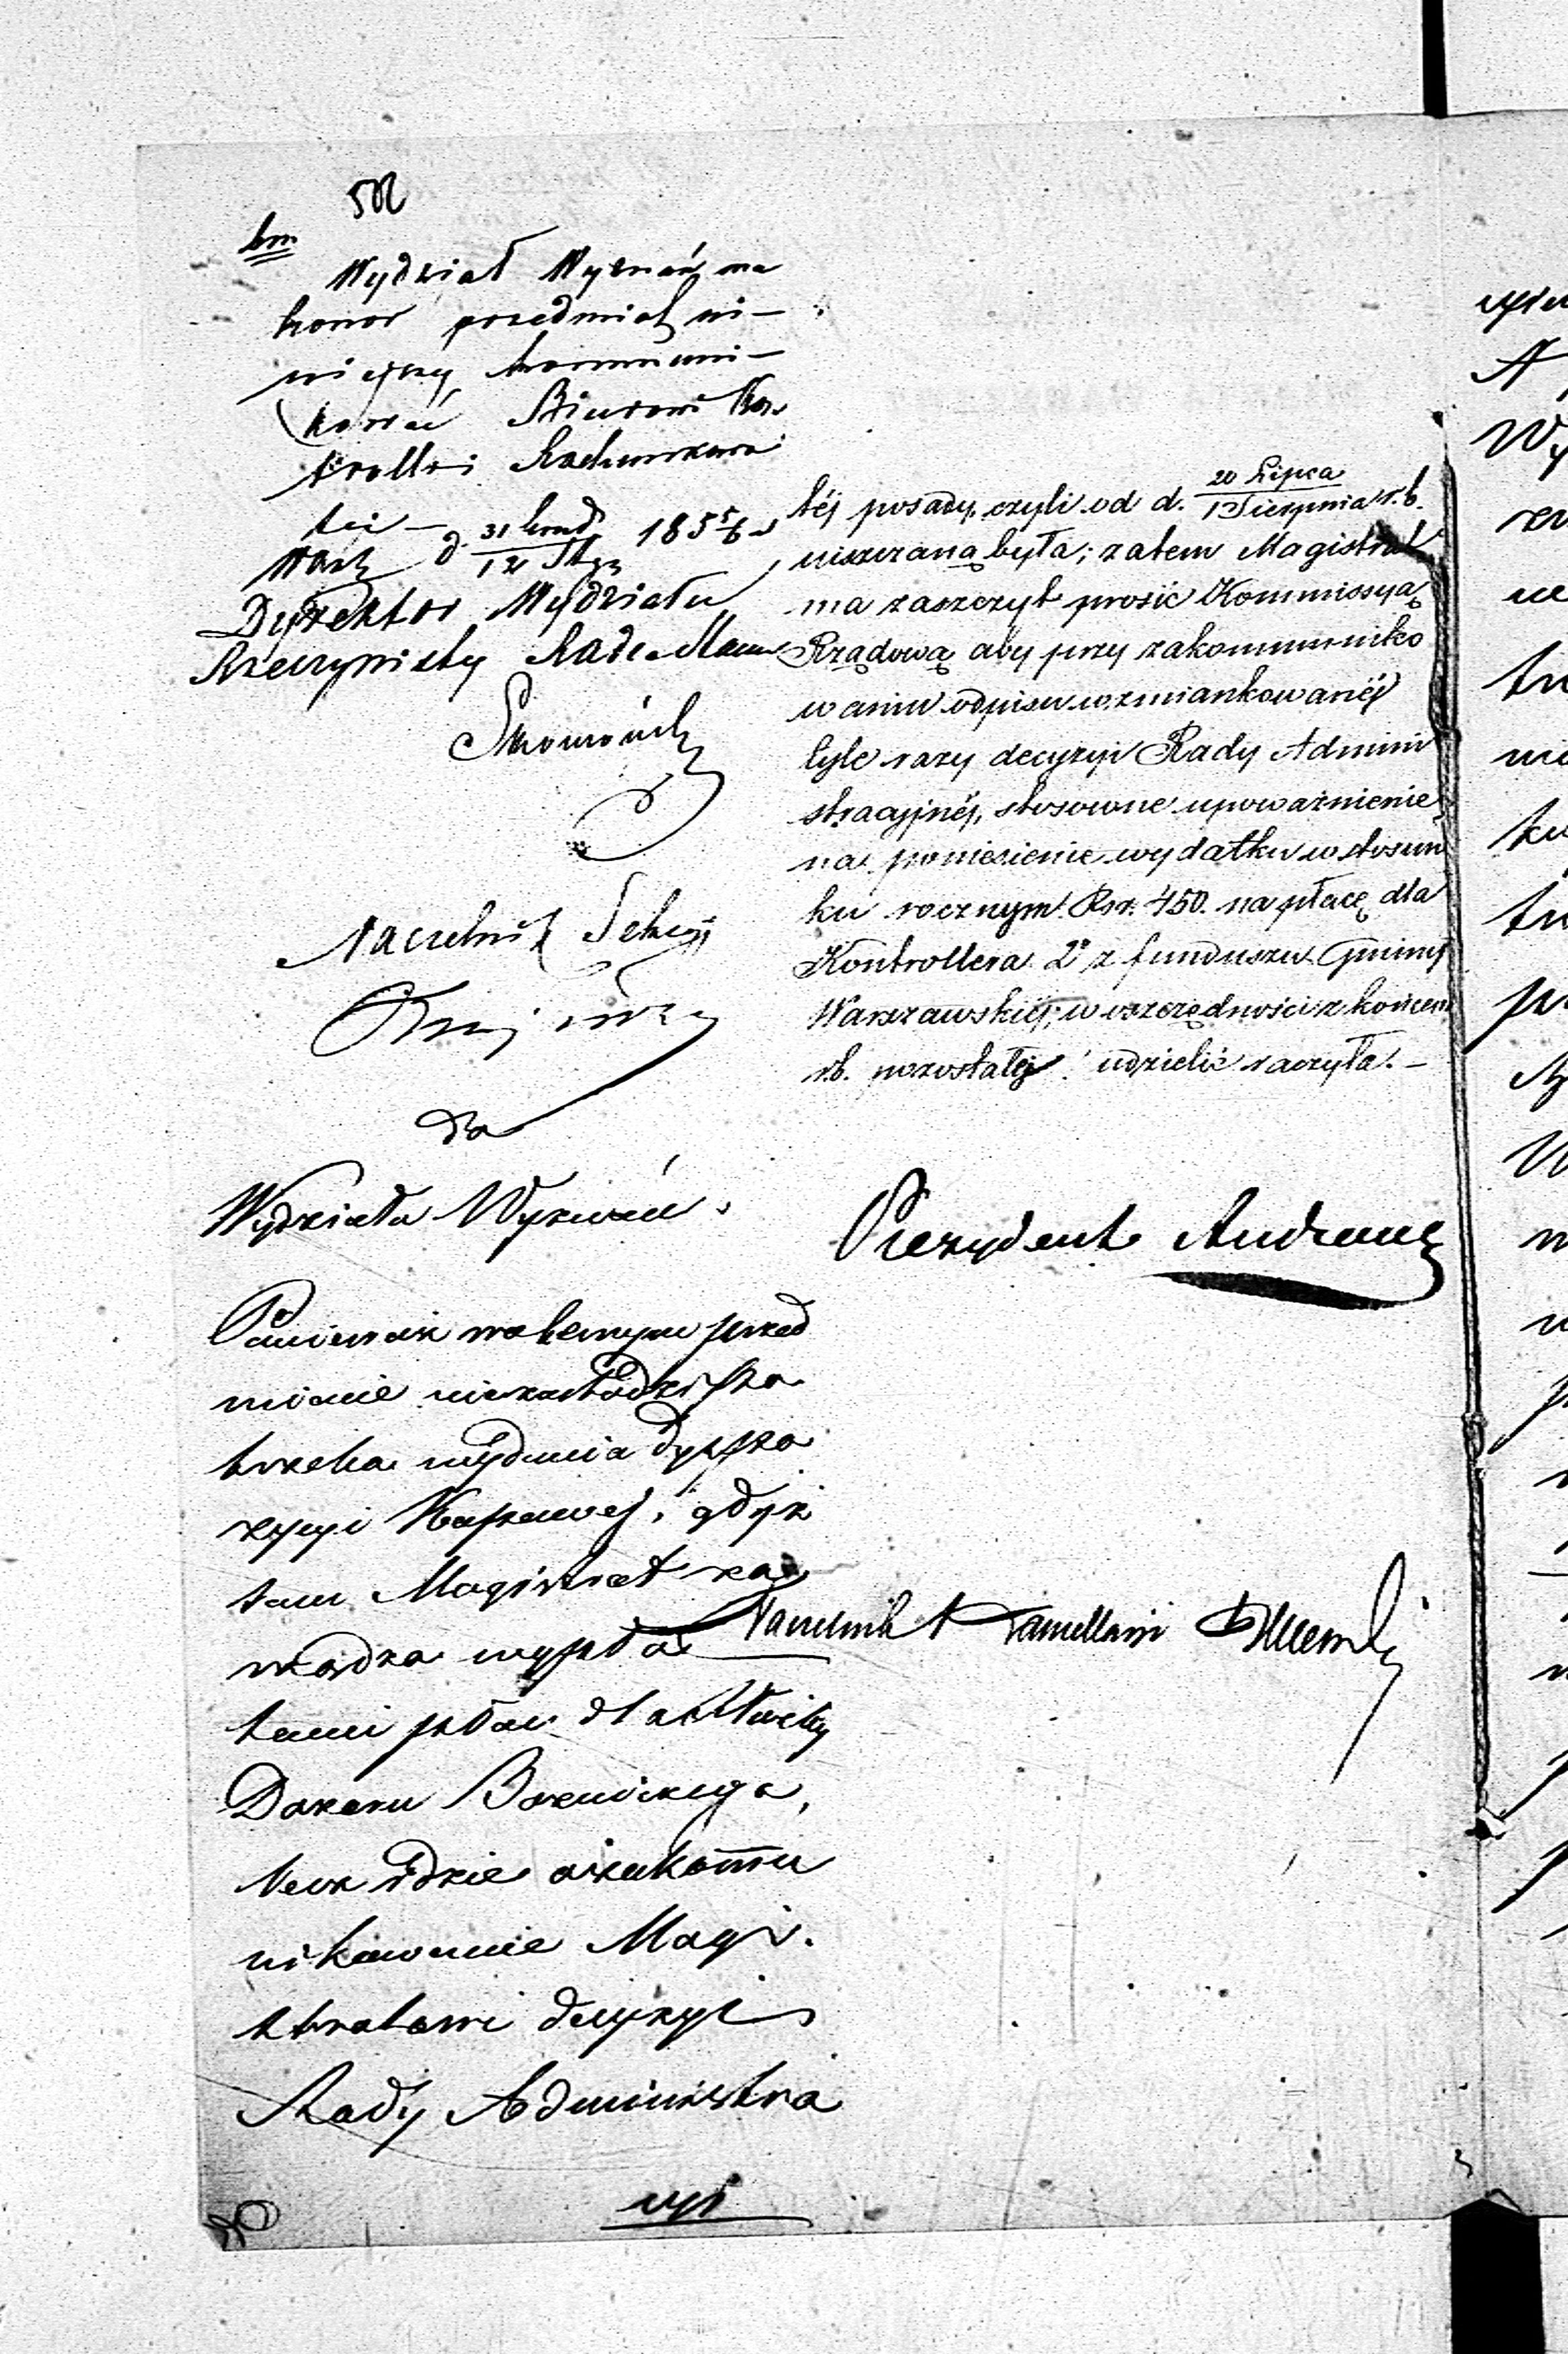 502
bm
Wydział Wyznań ma
honor przedmiot ni-
niejszy kommuni-
kować Biurowi Kon
trolli Rachunkowo
ści —
Warsz d. 31 Grud / 12 Stycz 1855/6
Dyrektor Wydziału
Rzeczywisty Radca Stanu
Naczelnik Sekcyi
Do
Wydziału Wyznań.
Ponieważ w obecnym przed
miocie niezachodzi po
trzeba wydania dyspo
zycyi Kassowej, gdyż
sam Magistrat za
rządza wypła
tami płac dla Służby
Dozoru Bożniczego,
lecz idzie o zakommu
nikowanie Magi-
stratowi decyzyi
Rady Administra
cyi
téj posady, czyli od d. 20 Lipca / 1 Sierpnia r. b.
uiszczaną była; zatem Magistrat
ma zaszczyt prosić Kommissyą
Rządową aby przy zakommuniko
waniu odpisu wzmiankowanéj
tyle razy decyzyi Rady Admini
stracyjnéj, stosowne upoważnienie
na poniesienie wydatku w stosun
ku rocznym Rsr. 450. na płacę dla
Kontrollera 2° z funduszu Gminy
Warszawskiéj, w oszczędności z końcem
r.b. pozostałéj udzielić raczyła. —
Prezydent Andrault
Naczelnik Kancellarii